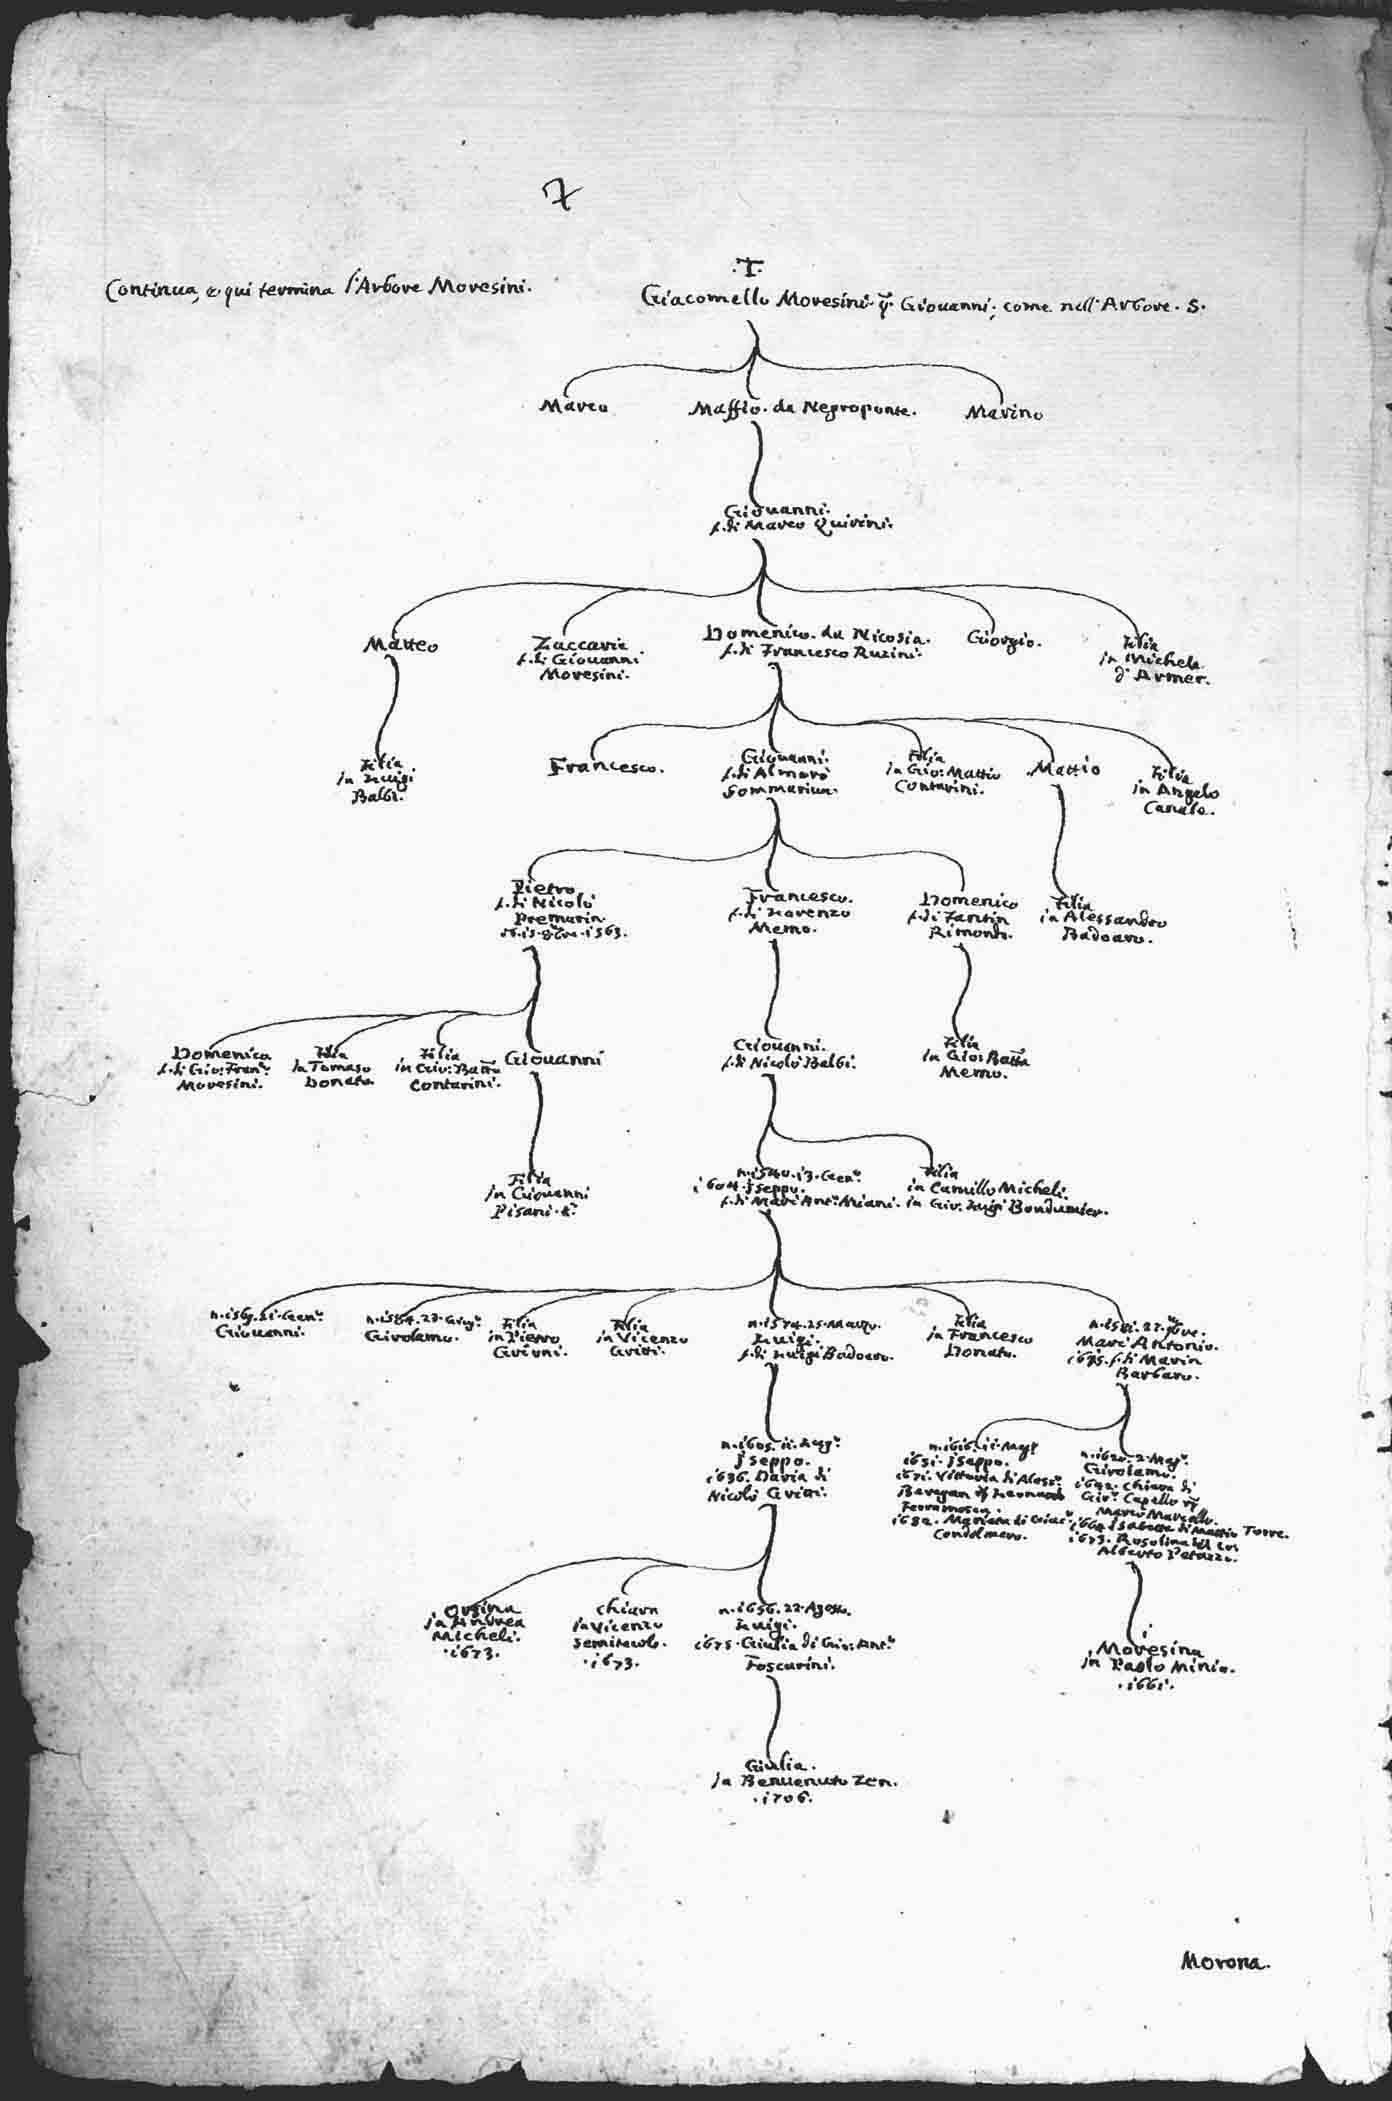 7
.T.
Continua, e qui termina l'Arbore Moresini.
Giacomello Moresini q. Giouanni; come nell'Arbore. S.
Marco
Maffio. da Negroponte.
Marino
Giouanni.
f. di Marco Quirini.
Matteo
Zaccaria
f. di Giouanni
Moresini.
Domenico. da Nicosia.
f. di Francesco Ruzini.
Giorgio.
Filia
in Michele
d'Armer.
Filia
in Luigi
Balbi.
Francesco.
Giouanni.
f. di Almorò
Sommariua.
Filia
in Gio: Mattio
Contarini.
Mattio
Filia
in Angelo
Canale.
Pietro
f. di Nicolò
Premarin.
1563.
Francesco.
f. di Lorenzo
Memo.
Domenico
f. di Fantin
Rimondo.
Filia
in Alessandro
Badoaro.
Domenico
f. di Gio: Franc.º
Moresini.
Filia
in Tomaso
Donato
Filia
in Gio: Batta
Contarini.
Giouanni
Giouanni.
f. di Nicolò Balbi.
Filia
in Gio: Batta
Memo.
Filia
in Giouanni
Pisani. K.r
n. 1540. 13. Gen.º
1604. Iseppo.
f. di Marc'Ant.º Miani.
Filia
in Camillo Micheli.
in Gio: Luigi Bondumier.
n. 1569. 21. Gen.º
Giouanni.
Girolamo.
Filia
in Pietro
Filia
in Vicenzo
Gritti.
n. 1574. 25. Marzo.
Luigi.
f. di Luigi Badoaro.
Filia
in Francesco
Donato.
Marc'Antonio.
f. di Marin
Barbaro.
n. 1605. 11.
Iseppo.
1636. Daria di
Nicolò Gritti.
n. 1616. 11. Magº
1651. Iseppo.
1671. Vittoria di Aless.º
Condolmero.
n. 1620. 2. Mag.º
Girolamo.
1642. Chiara di
Gir.º Capello
Marco Marcello.
1664. Isabetta di Mattio Torre.
1673. Rosolina del Co:
Alberto Petazzo.
Orsina
in Andrea
Micheli.
.1673.
Chiara
in Vicenzo
Semitecolo.
.1673.
n. 1656. 22. Agosto.
Luigi.
1675. Giulia di Gio: Ant.º
Foscarini.
Moresina
in Paolo Minio.
.1661.
Giulia.
in Benuenuto Zen.
.1706.
Morona.